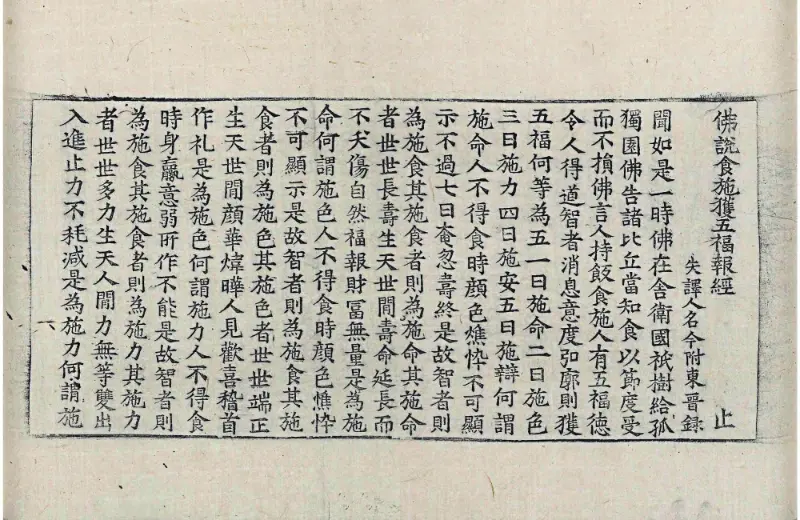 佛說食施獲五福報經 止
失譯人名今附東晉録
聞如是一時佛在舍衛國祇樹給孤
獨園佛告諸比丘當知食以節度受
而不損佛言人持飯食施人有五福德
令人得道智者消息意度弘廓則獲
五福何等為五一曰施命二曰施色
三曰施力四曰施安五曰施辯何謂
施命人不得食時顔色燋悴不可顯
示不過七日奄忽壽終是故智者則
為施食其施食者則為施命其施命
者世世長壽生天世間壽命延長而
不夭傷自然福報財冨無量是為施
命何謂施色人不得食時顔色燋悴
不可顯示是故智者則為施食其施
食者則為施色其施色者世世端正
生天世間顔華煒曄人見歡喜稽首
作礼是為施色何謂施力人不得食
時身羸意弱所作不能是故智者則
為施食其施食者則為施力其施力
者世世多力生天人間力無等雙出
入進止力不耗减是為施力何謂施